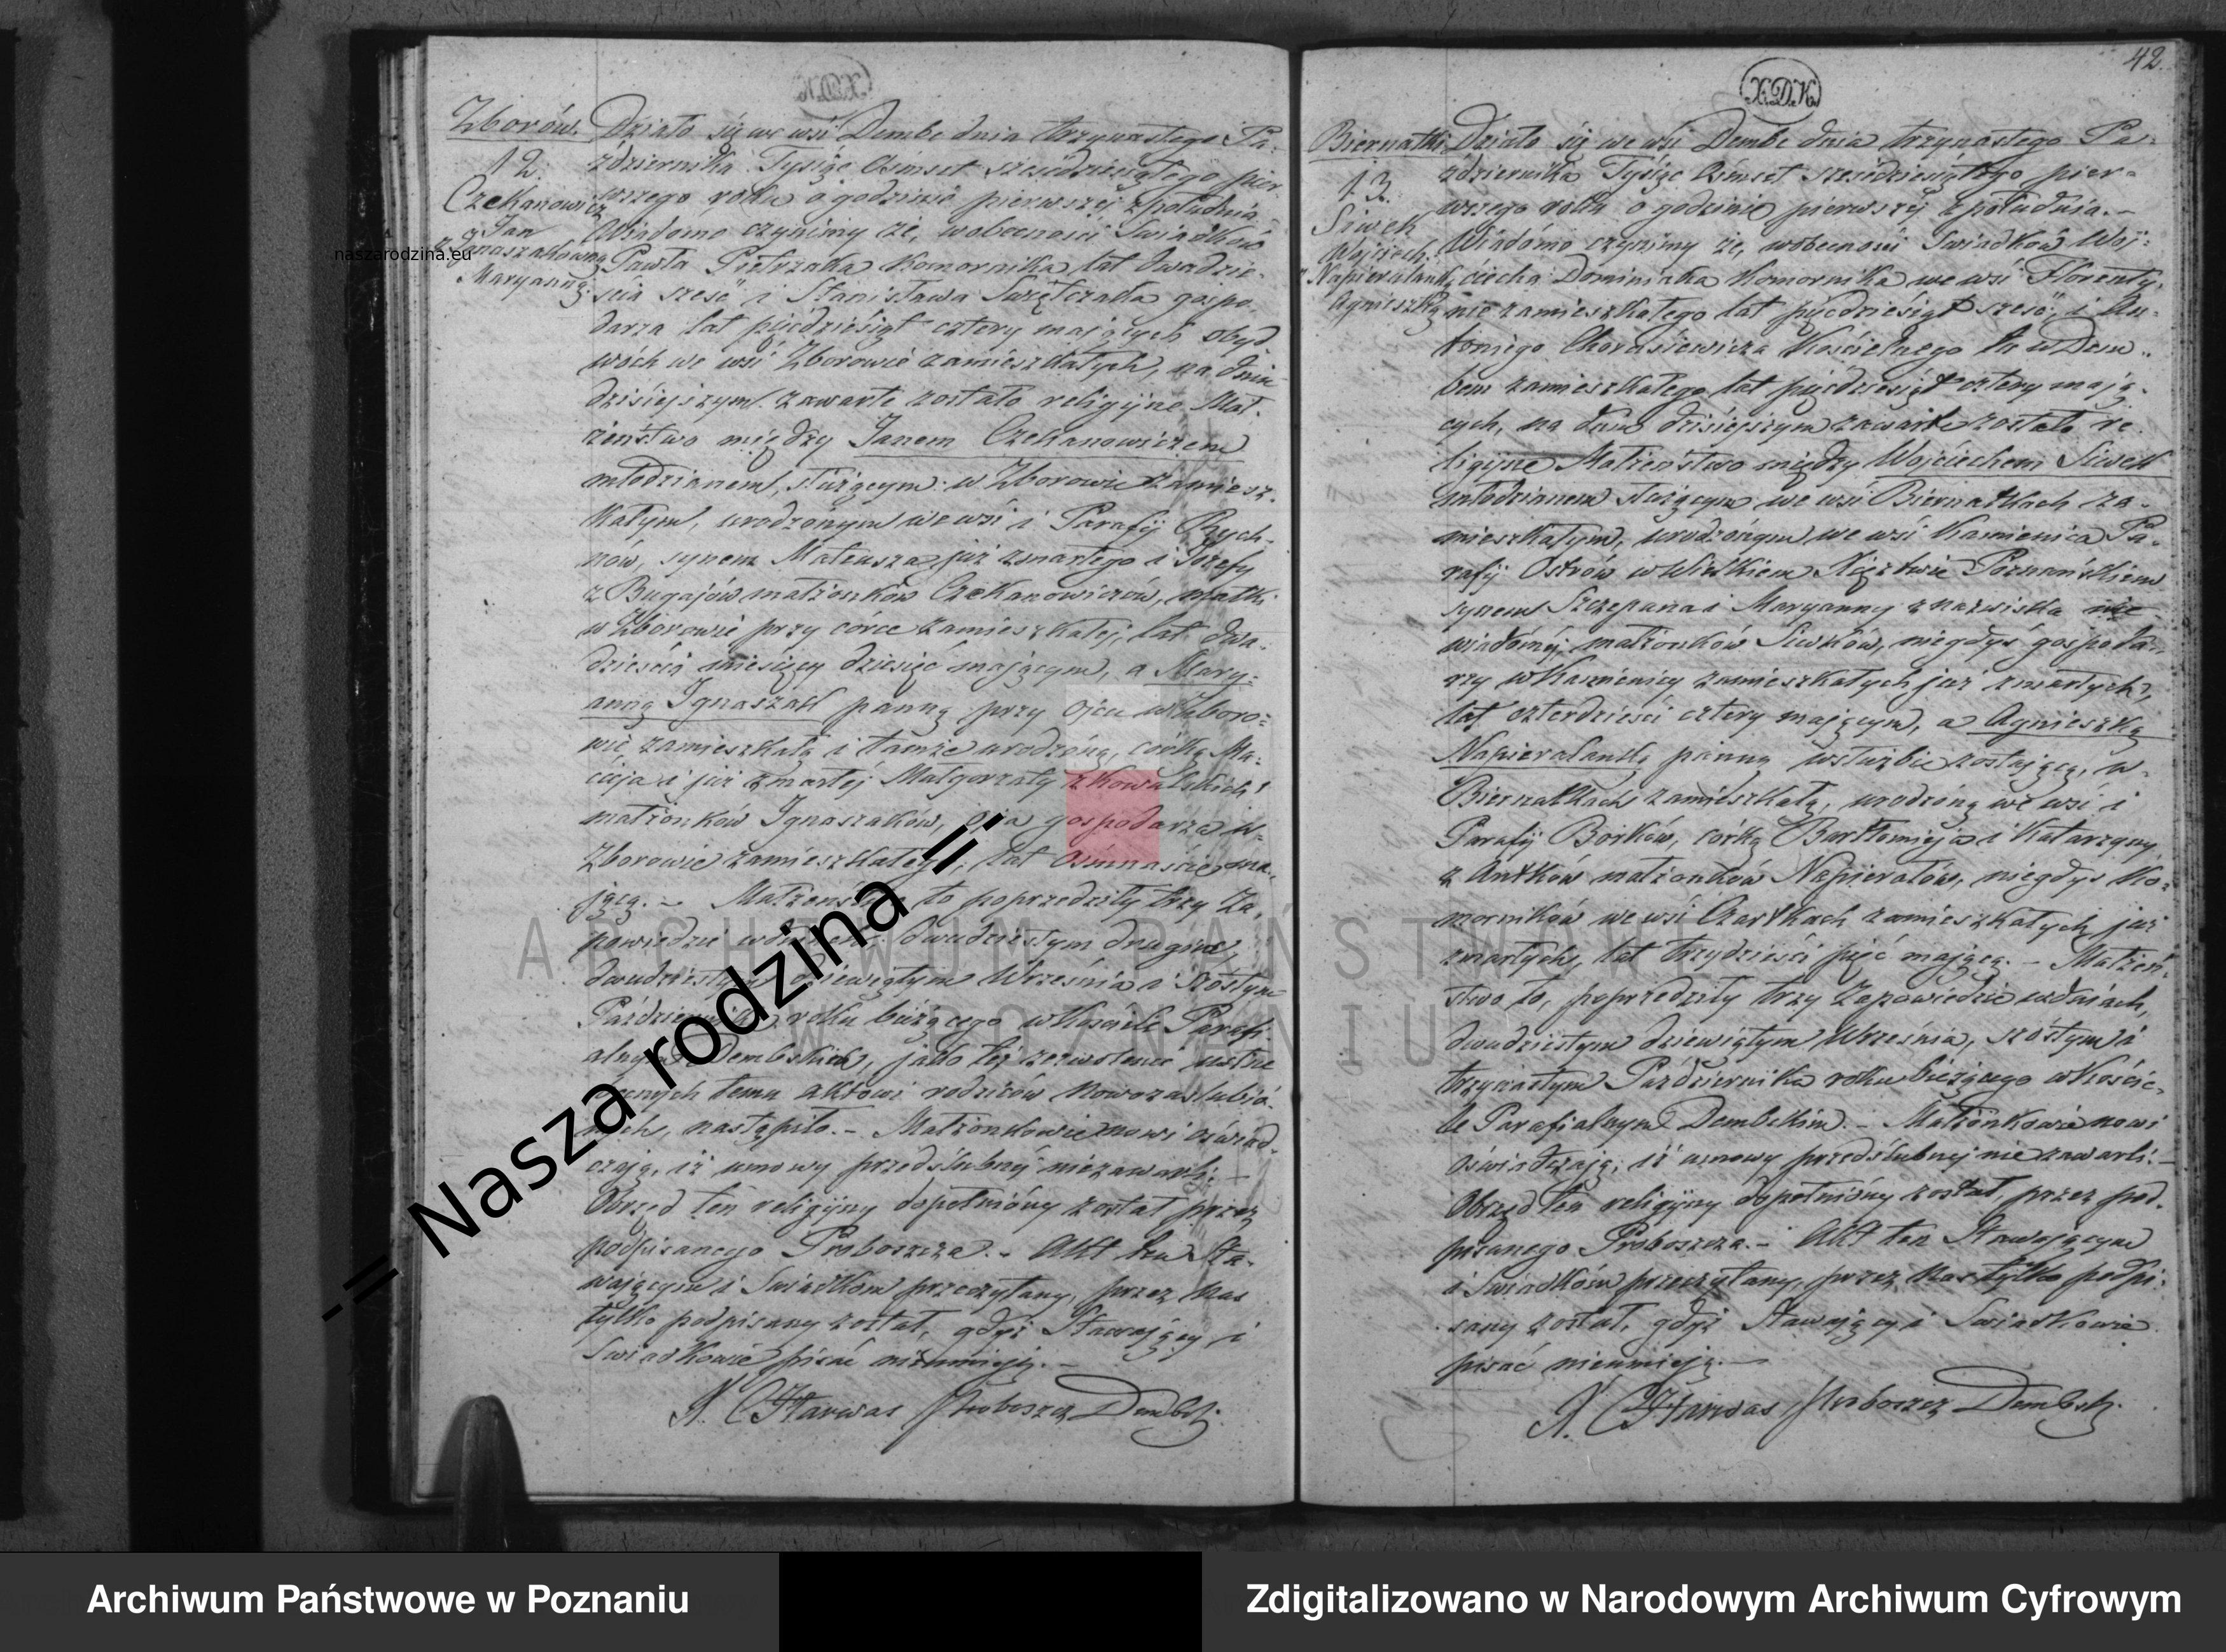 Zborów.
12.
Czekanowicz
Jan
z Ignaszakówną
Maryanną.
Działo się we wsi Dembe dnia trzynastego Pa-
ździernika Tysiąc Ośmset sześćdziesiątego pier-
wszego roku o godzinie pierwszej z południa.
Wiadomo czynimy że, w obecności Świadków
Pawła Pietrzaka Komornika lat dwadzie-
ścia sześć i Stanisława gospo-
darza lat pięćdziesiąt cztery mających obyd
wóch we wsi Zborowie zamieszkałych, na dniu
dzisiejszym zawarte zostało religijne Mał-
żeństwo między Janem Czekanowiczem
młodzianem, służącym w Zborowie zamiesz-
kałym, urodzonym we wsi i Parafij Rych-
nów, synem Mateusza już zmarłego i Józefy
z Bugajów małżonków Czekanowiczów, matki
w Zborowie przy córce zamieszkałej, lat dwa-
dzieścia miesięcy dziesięć mającym, a Mary-
anną Ignaszak panną przy ojcu w Zboro-
wie zamieszkałą i tamże urodzoną, córką Ma-
cieja i już zmarłej Małgorzaty z Kowalskich
małżonków Ignaszaków, ojca gospodarza w
Zborowie zamieszkałego, lat Ośmnaście ma-
jącą. – Małżeństwo to poprzedziły trzy Za-
powiedzie w dniach, dwudziestym drugim,
dwudziestym dziewiątym Września i szóstym
Października roku bieżącego w Kościele Parafi-
alnym Dembskim, jako też zezwolenie ustne
obecnych temu aktowi rodziców nowozaślubio-
nych, nastąpiło. – Małżonkowie nowi oświad-
czają, iż umowy przedślubnej niezawarli. –
Obrzęd ten religijny dopełniony został przez
podpisanego Proboszcza. – Akt ten Sta-
wającym i Świadkom przeczytany, przez Nas
tylko podpisany został, gdyż Stawający i
Świadkowie pisać nieumieją. –
Proboszcz Dembski.
42.
X.D.K.
Biernatki
13.
Siwek
Wojciech.
Agnieszką
Działo się we wsi Dembe dnia trzynastego Pa-
ździernika Tysiąc Ośmset sześćdziesiątego pier-
wszego roku o godzinie pierwszej z południa. –
Wiadomo czynimy że, w obecności Świadków Woj-
ciecha Dominiaka Komornika we wsi Florenty-
nie zamieszkałego lat pięćdziesiąt sześć, i An-
toniego Kościelnego tu w Dem-
bem zamieszkałego lat pięćdziesiąt cztery mają-
cych, na dniu dzisiejszym zawarte zostało re-
ligijne Małżeństwo między Wojciechem Siwek
młodzianem służącym we wsi Biernatkach za-
mieszkałym, urodzonym we wsi Kamienica Pa-
rafij Ostrow w Wielkiem Xięztwie Poznańskiem
synem Szczepana i Maryanny z nazwiska nie
wiadomej małżonków Siwków, niegdyś gospoda-
rzy w Kamienicy zamieszkałych już zmarłych,
lat czterdzieści cztery mającym, a Agnieszką
panną w służbie zostającą, w
Biernatkach zamieszkałą, urodzoną we wsi i
Parafij Borków, córką Bartłomieja i Katarzyny
z Antków małżonków Napierałów, niegdyś Ko-
morników we wsi Czartkach zamieszkałych już
zmarłych, lat trzydzieści pięć mającą. – Małżeń-
stwo to, poprzedziły trzy Zapowiedzie w dniach,
dwudziestym dziewiątym Września, szóstym i
trzynastym Października roku bieżącego w Koście-
le Parafialnym Dembskim. – Małżonkowie nowi
oświadczają, iż umowy przedślubnej nie zawarli. –
Obrzęd ten religijny dopełniony został, przez pod-
pisanego Proboszcza. – Akt ten Stawającym
i Świadkom przeczytany, przez Nas tylko podpi-
sany został, gdyż Stawający i Świadkowie
pisać nieumieją. –
Proboszcz Dembski.
naszarodzina.eu
-= Nasza rodzina =-
ARCHIWUM PAŃSTWOWE
W POZNANIU
Archiwum Państwowe w Poznaniu
Zdigitalizowano w Narodowym Archiwum Cyfrowym